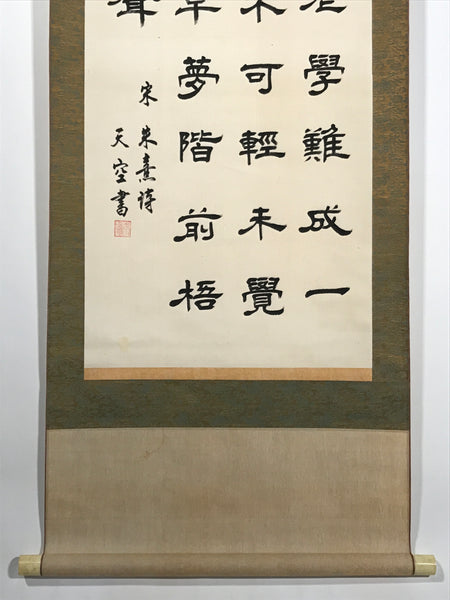 老學難成一
不可輕未覺
草夢階前梧
聲
宋 朱熹詩
天空書